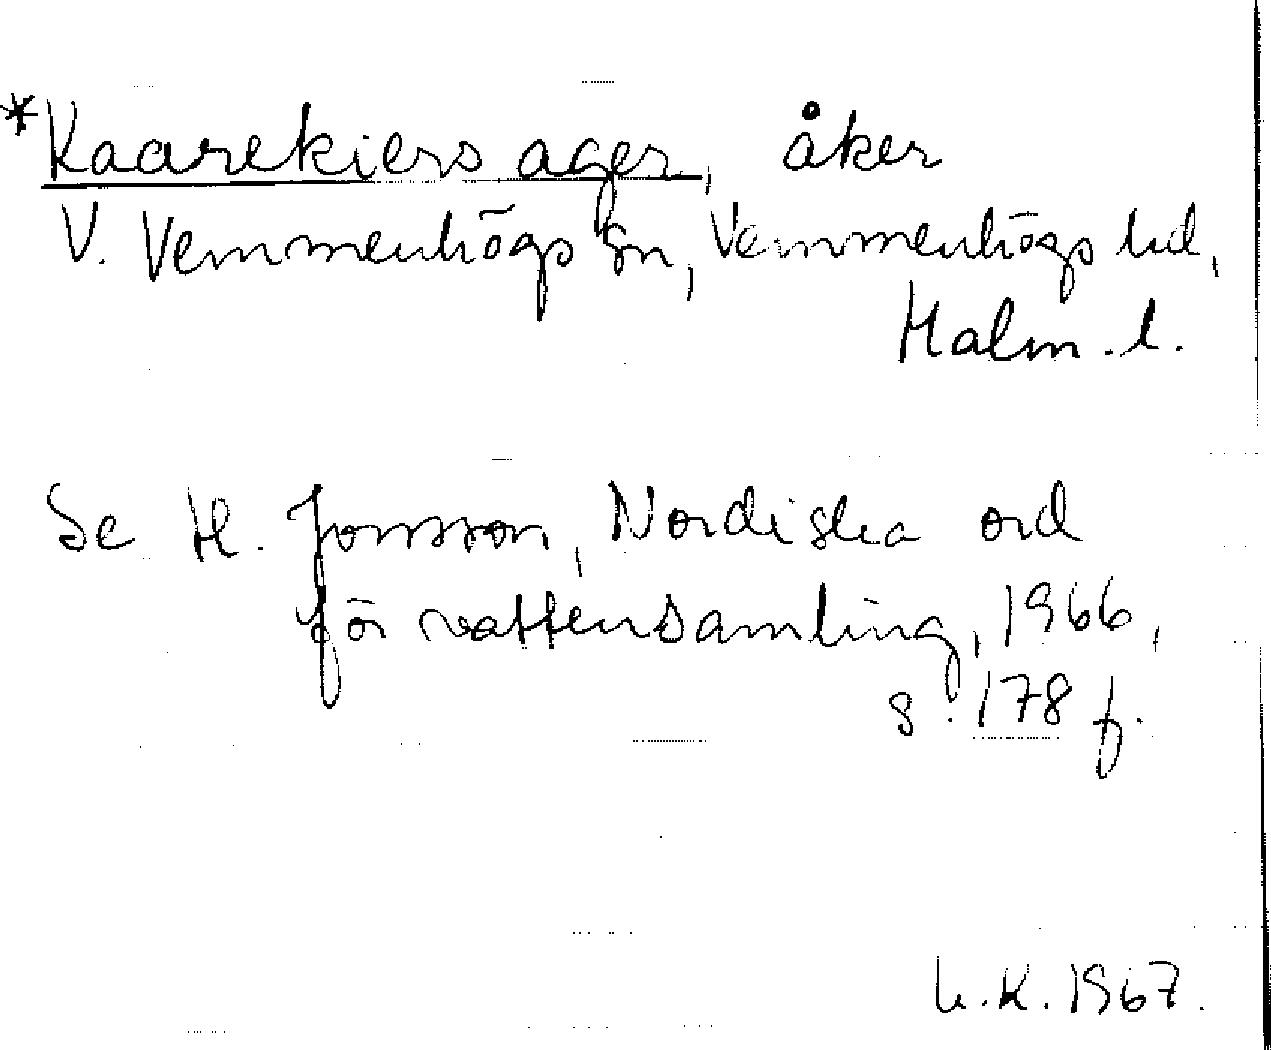 *Kaarekiers ager, åker
V. Vemmenhögs sn, Vemmenhögs hd,
Malm. l.
Se H. Jonsson, Nordiska ord
för vattensamling, 1966,
s. 178 f.
L.K. 1967.